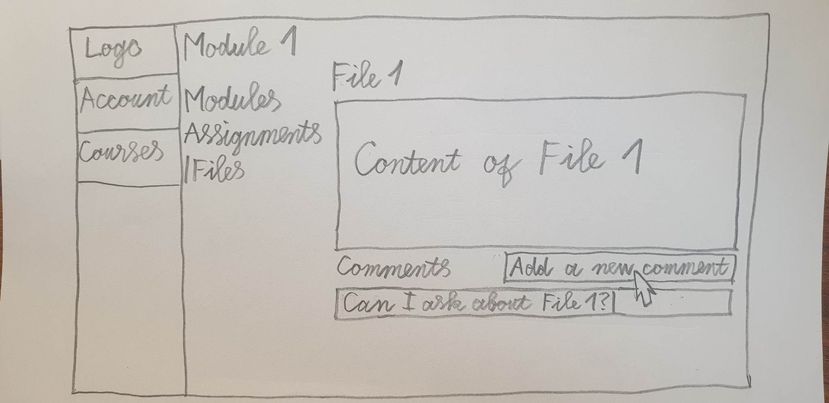 Logo
Account
Courses
Module 1
Modules
Assignments
|Files
File 1
Content of File 1
Comments
Add a new comment
Can I ask about File 1?|